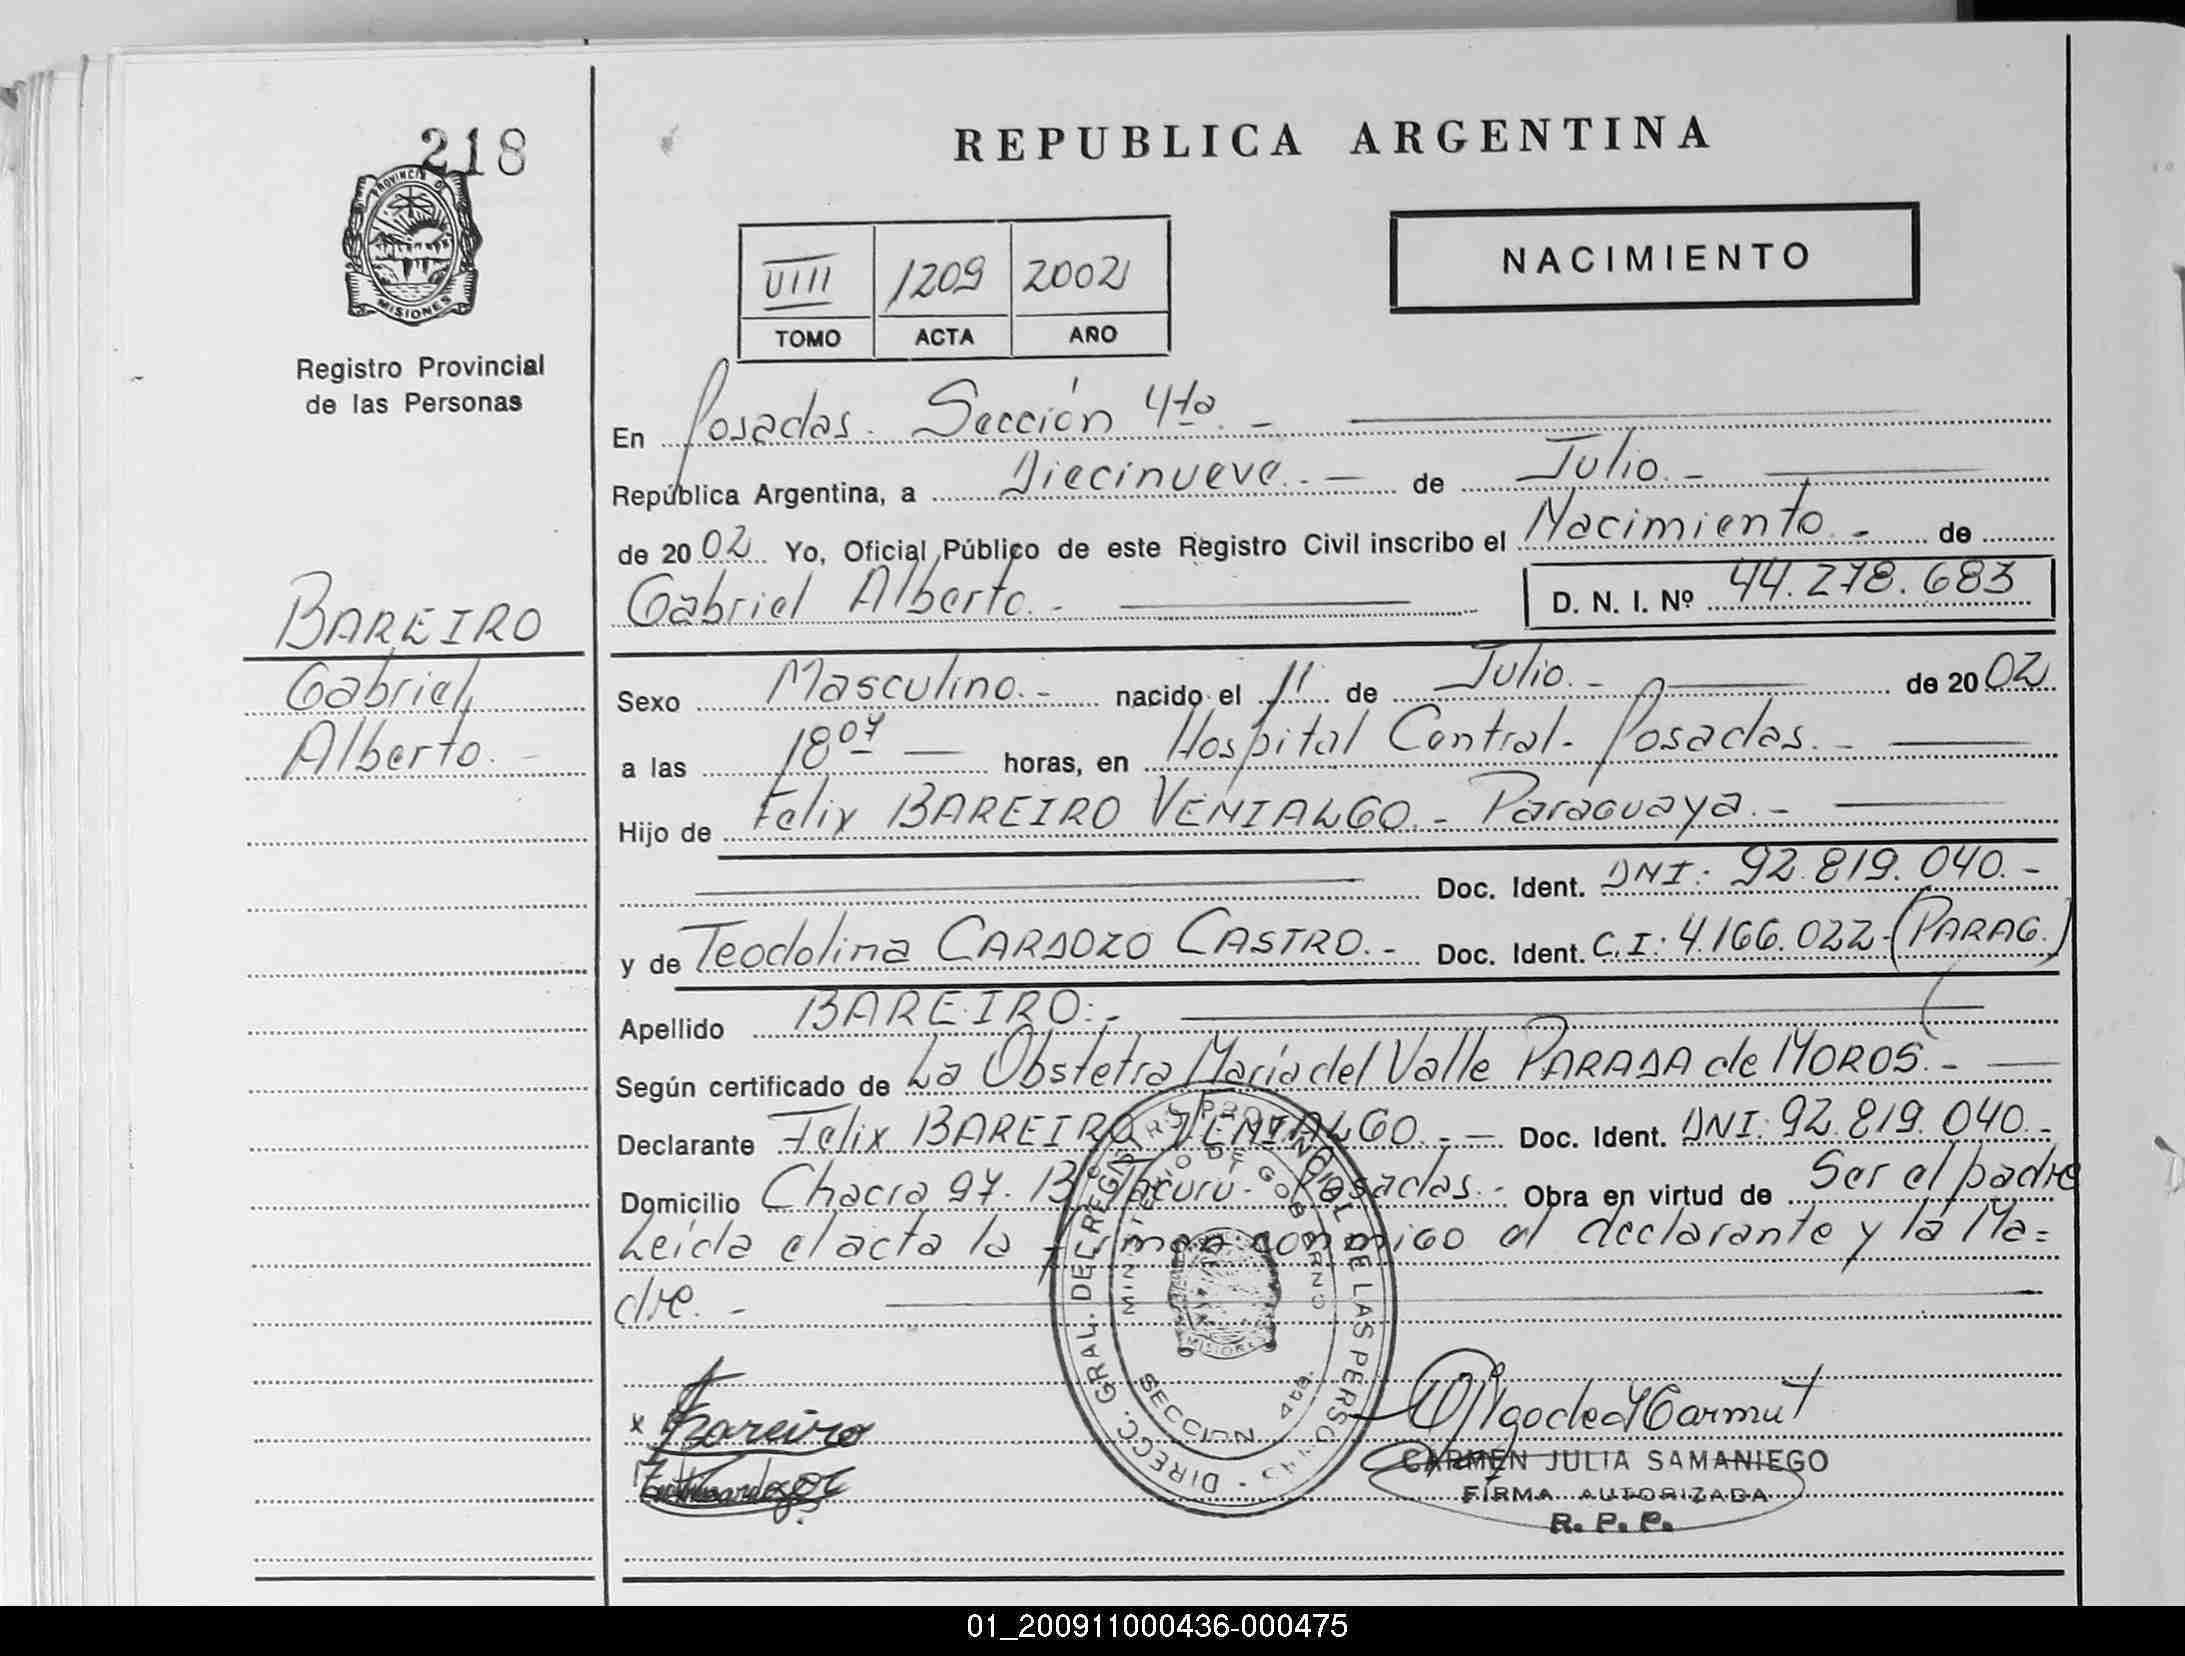 218
PROVINCIA DE
MISIONES
Registro Provincial
de las Personas
BAREIRO
Gabriel
Alberto.-
REPUBLICA ARGENTINA
NACIMIENTO
VIII 1209 2002
TOMO ACTA AÑO
En Posadas. Sección 4ta.-
República Argentina, a Diecinueve.- de Julio.-
de 2002 Yo, Oficial Público de este Registro Civil inscribo el Nacimiento.- de
Gabriel Alberto.- D. N. I. Nº 44.278.683
Sexo Masculino.- nacido el 11 de Julio.- de 2002
a las 18 07 horas, en Hospital Central- Posadas.-
Hijo de Felix BAREIRO VENIALGO.- Paraguaya.-
Doc. Ident. DNI: 92.819.040.-
y de Teodolina CARDOZO CASTRO.- Doc. Ident. C.I: 4.166.022-(PARAG.)
Apellido BAREIRO.-
Según certificado de La Obstetra María del Valle PARADA de MOROS.-
Declarante Felix BAREIRO VENIALGO.- Doc. Ident. DNI: 92.819.040.-
Domicilio Chacra 97. Bº Tacurú- Posadas.- Obra en virtud de Ser el padre
Leída el acta la firman conmigo el declarante y la Ma=
dre.-
DIRECC. GRAL. DEC. REGISTRO PROVINCIAL DE LAS PERSONAS
MINISTERIO DE GOBIERNO
MISIONES
SECCION 4ta.
x Bareiro
CARMEN JULIA SAMANIEGO
FIRMA AUTORIZADA
R. P. P.
01_200911000436-000475